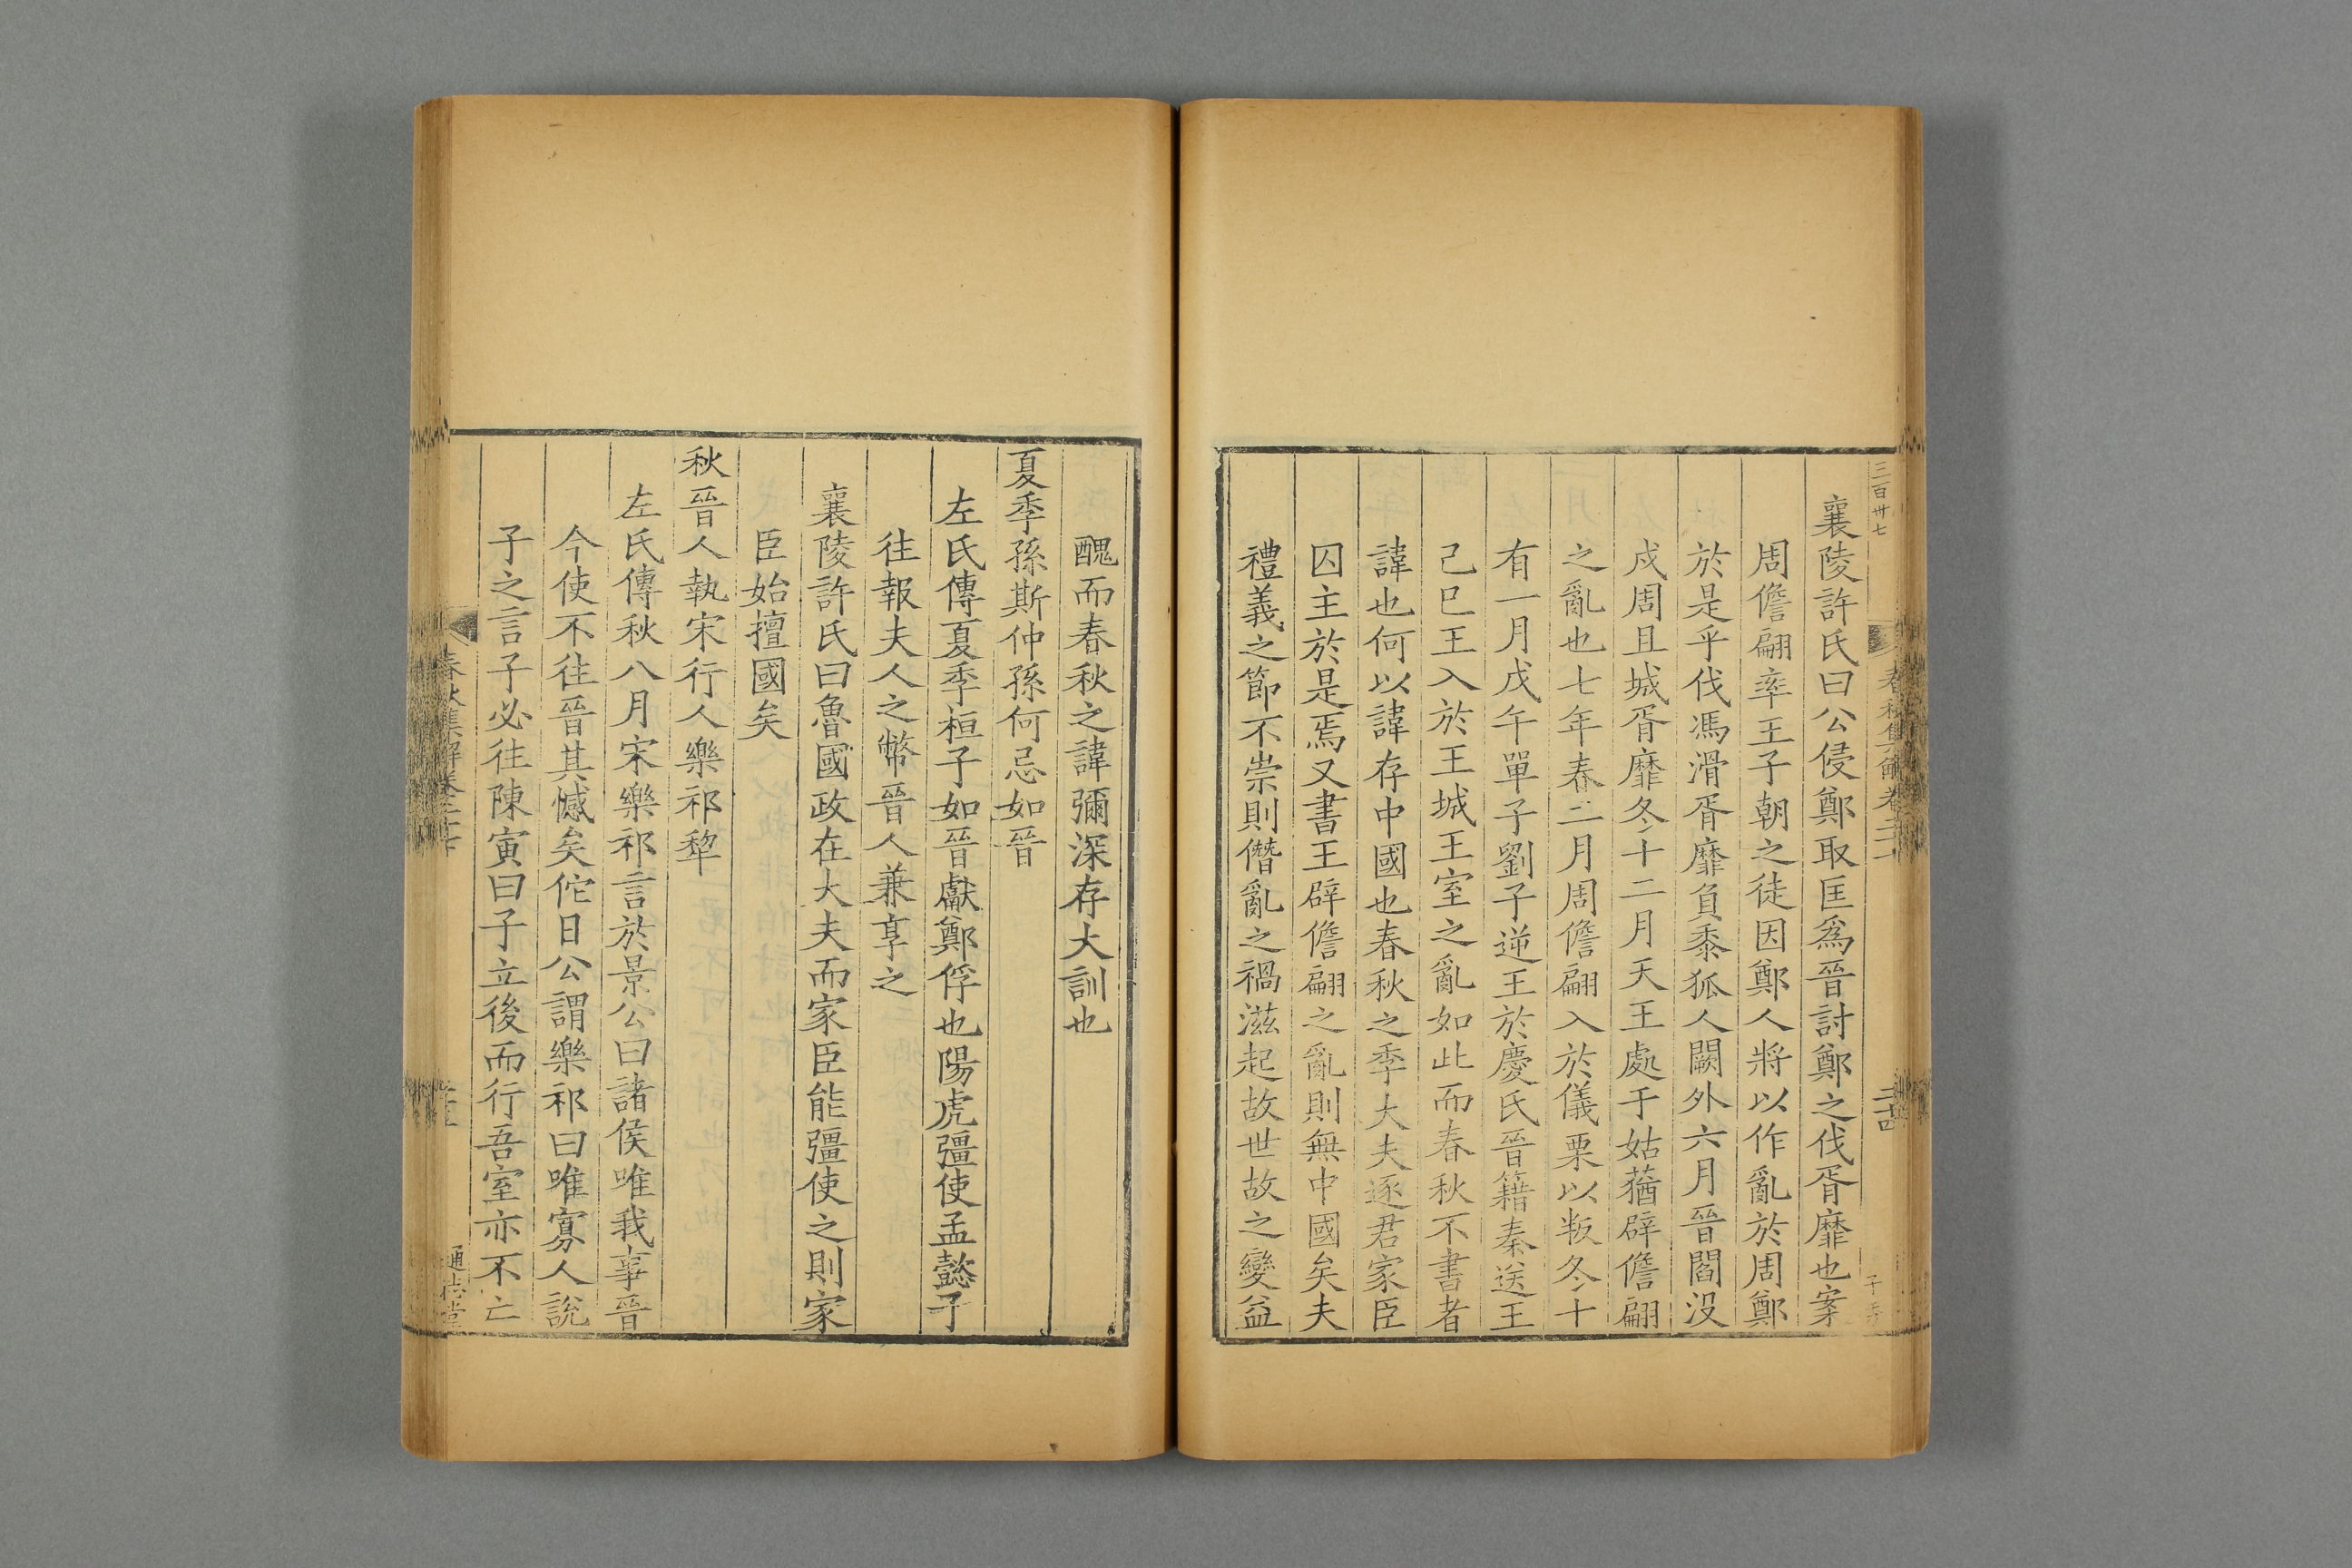 三百卅七
襄陵許氏曰公侵鄭取匡爲晉討鄭之伐胥靡也案
周儋翩率王子朝之徒因鄭人將以作亂於周鄭
於是乎伐馮滑胥靡負黍狐人闕外六月晉閻没
戍周且城胥靡冬十二月天王處于姑蕕辟儋翩
之亂也七年春二月周儋翩入於儀栗以叛冬十
有一月戊午單子劉子逆王於慶氏晉籍秦送王
己巳王入於王城王室之亂如此而春秋不書者
諱也何以諱存中國也春秋之季大夫逐君家臣
囚主於是焉又書王辟儋翩之亂則無中國矣夫
禮義之節不崇則僭亂之禍滋起故世故之變益
醜而春秋之諱彌深存大訓也
夏季孫斯仲孫何忌如晉
左氏傳夏季桓子如晉獻鄭俘也陽虎彊使孟懿子
往報夫人之幣晉人兼享之
襄陵許氏曰魯國政在大夫而家臣能彊使之則家
臣始擅國矣
秋晉人執宋行人樂祁犂
左氏傳秋八月宋樂祁言於景公曰諸侯唯我事晉
今使不往晉其憾矣佗日公謂樂祁曰唯寡人說
子之言子必往陳寅曰子立後而行吾室亦不亡
春秋集解卷二十
通志堂